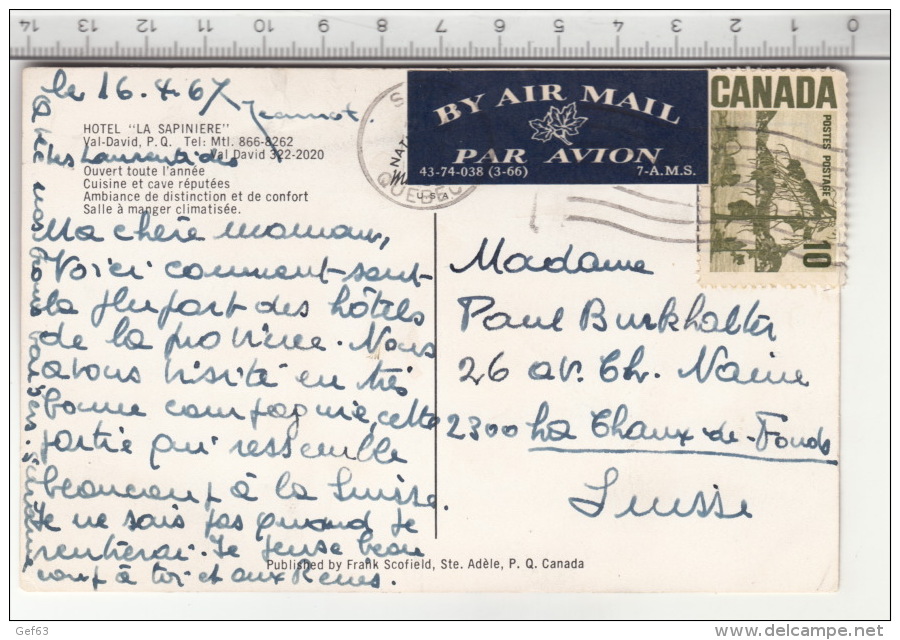 14 13 12 11 10 9 8 7 6 5 4 3 2 1 0
le 16.4.67
Jeannot.
HOTEL "LA SAPINIERE"
Val-David, P. Q. Tel: Mtl. 866-8262
Val David 322-2020
Les Laurentides
Ouvert toute l'année
Cuisine et cave réputées
Ambiance de distinction et de confort
Salle à manger climatisée.
Ma chère maman,
Voici comment sont
la plupart des hôtels
de la province. Nous
avons visité en très
bonne compagnie, cette
partie qui ressemble
beaucoup à la Suisse.
Je ne sais pas quand je
rentrerai. Je pense beau
coup à toi et aux
nos bons baisers.
QUEBEC
BY AIR MAIL
PAR AVION
43-74-038 (3-66) 7-A.M.S.
CANADA
POSTES POSTAGE
10
Madame
Paul Burkhalter
26 av. Ch. Naine
2300 La Chaux-de-Fonds
Suisse
Published by Frank Scofield, Ste. Adèle, P. Q. Canada
Gef63
www.delcampe.net